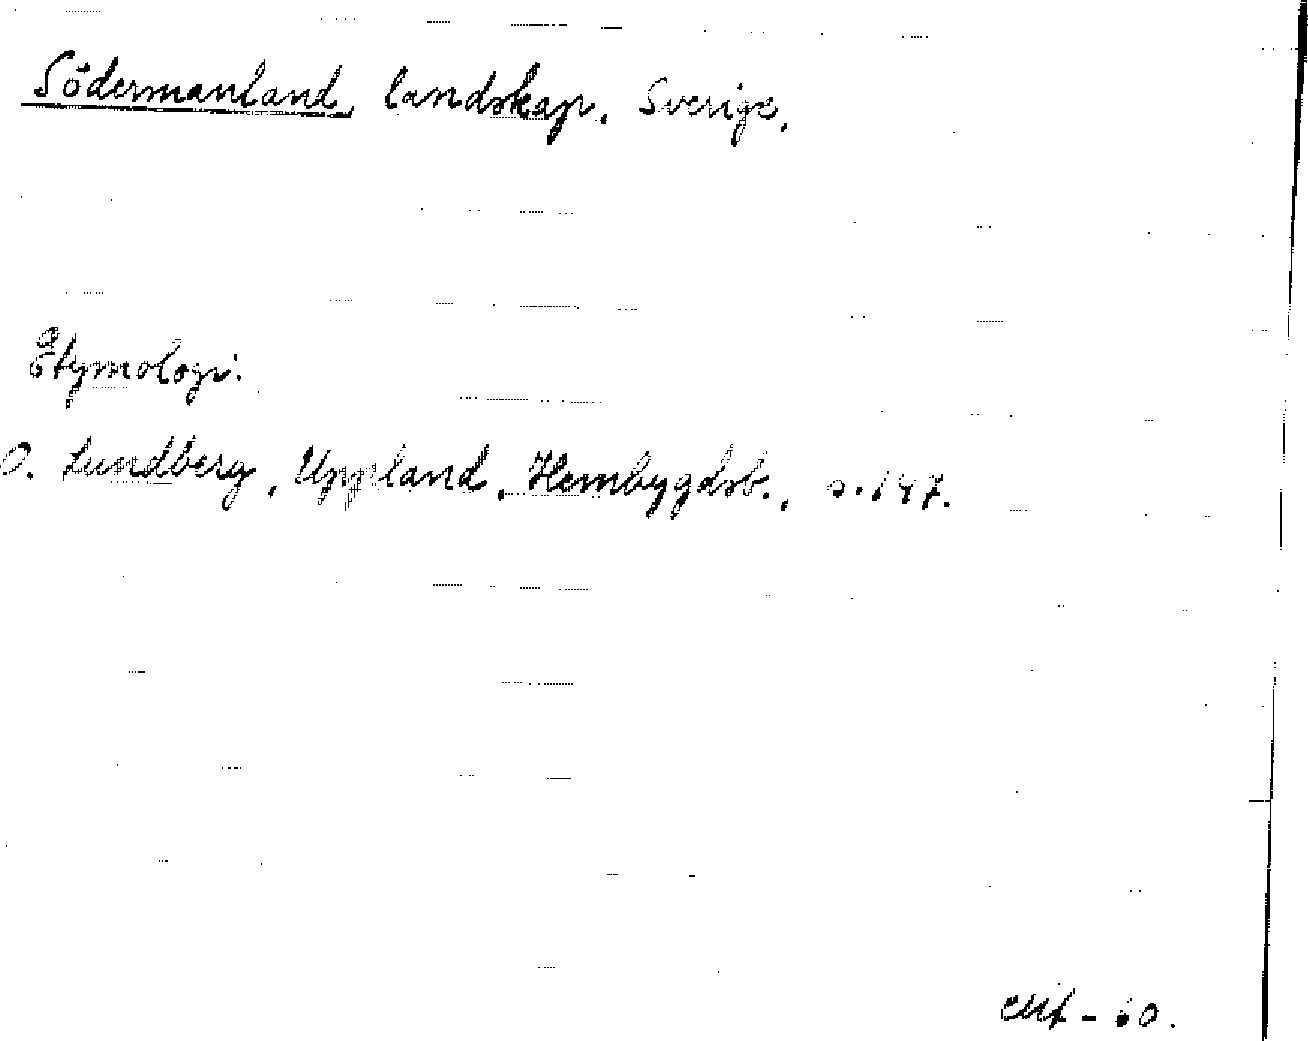 Södermanland, landskap, Sverige,
Etymologi.
O. Lundberg, Uppland, Hembygdsb., s. 147.
-60.